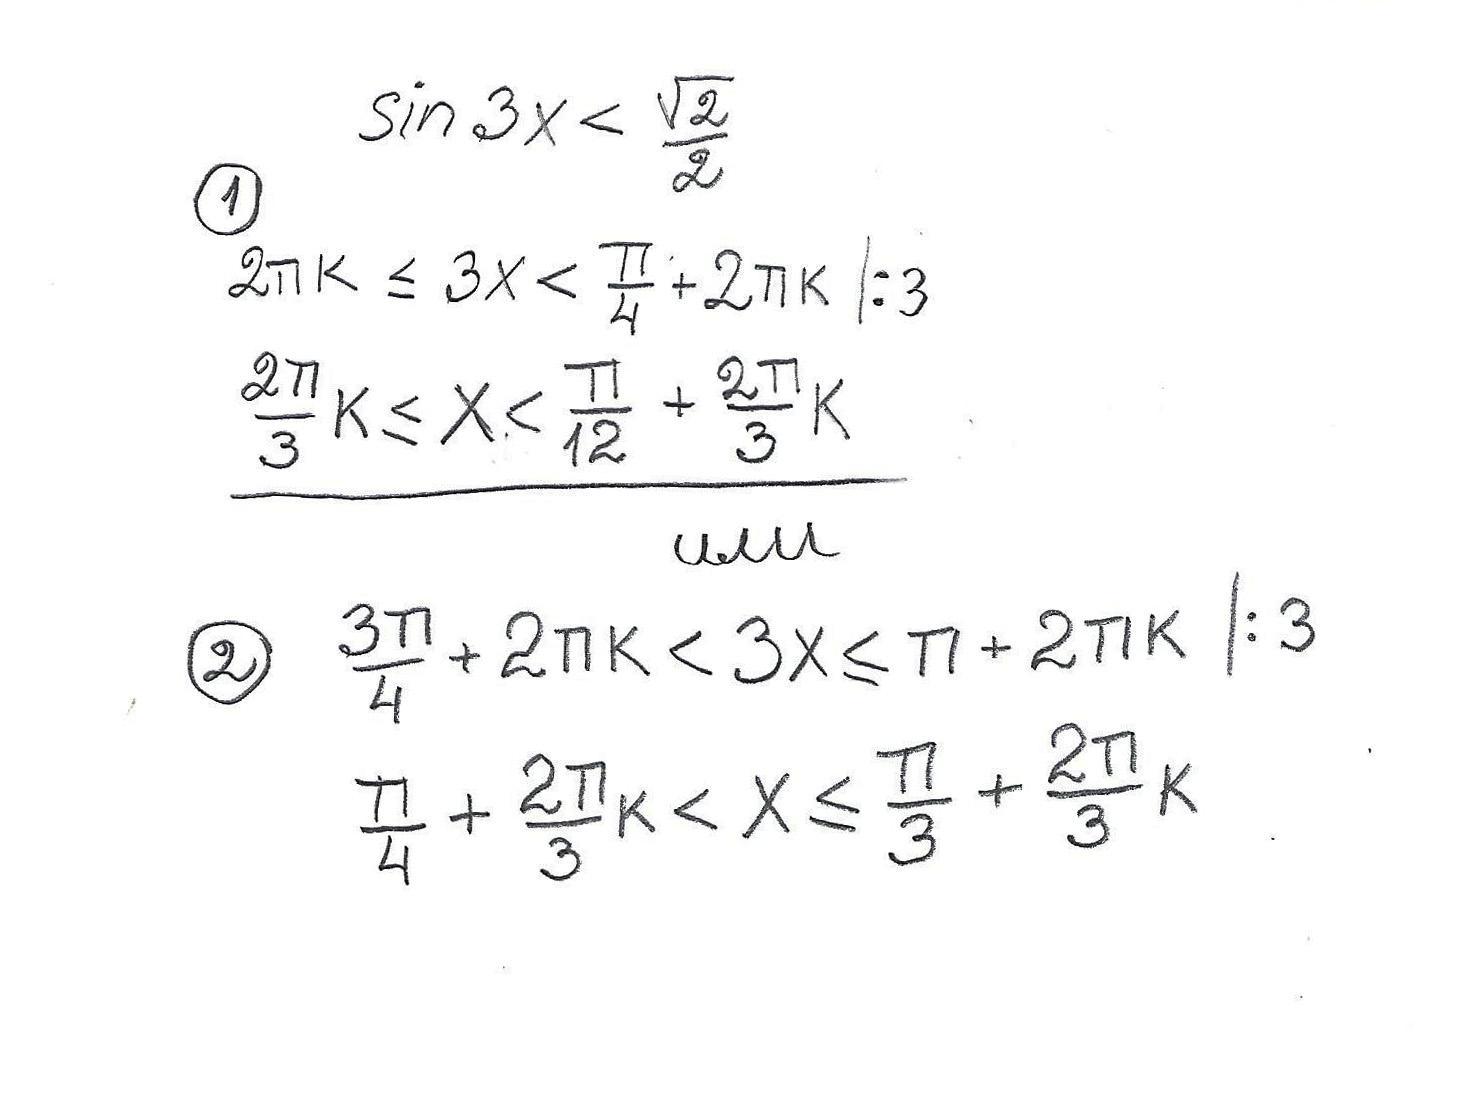 sin 3x < √2/2
①
2πк ≤ 3x < π/4 + 2πк |:3
2π/3 к ≤ x < π/12 + 2π/3 к
или
② 3π/4 + 2πк < 3x ≤ π + 2πк |:3
π/4 + 2π/3 к < x ≤ π/3 + 2π/3 к